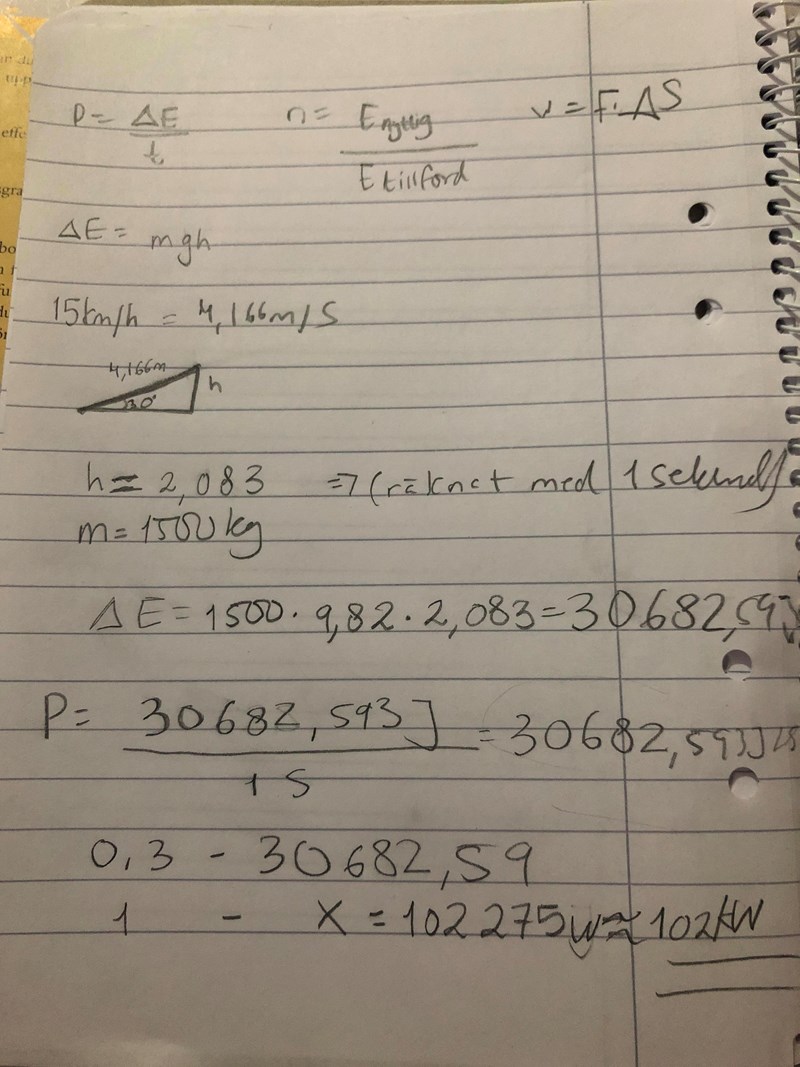 P = ΔE / t    n = Enyttig / Etillförd    w = F·ΔS
ΔE = mgh
15km/h = 4,166m/s
4,166m
h
30°
h = 2,083 => (räknat med 1 sekund)
m = 1500 kg
ΔE = 1500 · 9,82 · 2,083 = 30682,593J
P = 30682,593J / 1 S = 30682,593J/s
0,3 - 30682,59
1 - X = 102 275W ≈ 102kW